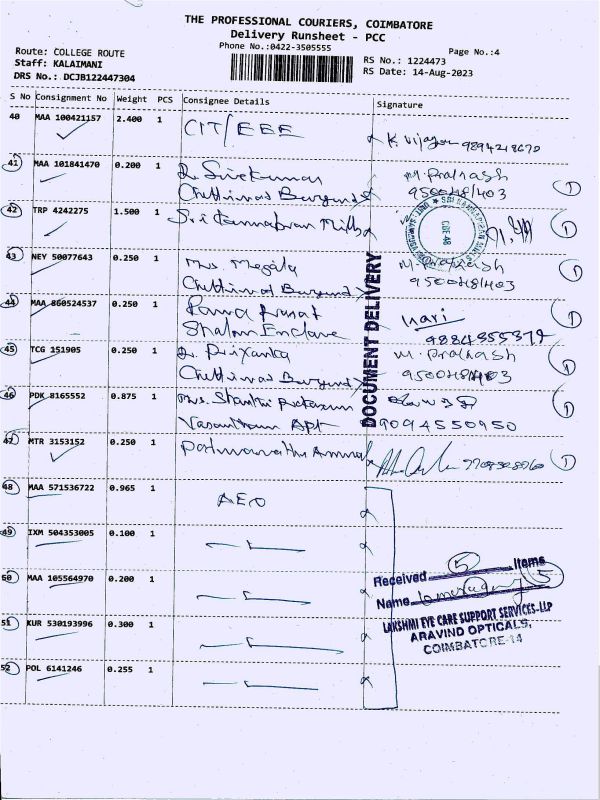 THE PROFESSIONAL COURIERS, COIMBATORE
Delivery Runsheet - PCC
Phone No.:0422-3505555
Page No.:4
Route: COLLEGE ROUTE
Staff: KALAIMANI
DRS No.: DCJB122447304
RS No.: 1224473
RS Date: 14-Aug-2023
S No Consignment No Weight PCS Consignee Details Signature
40 MAA 100421157 2.400 1 CIT/EEE K. 9894218670
41 MAA 101841470 0.200 1 M. Prakash
9500481403 1
42 TRP 4242275 1.500 1 Mills 1
43 NEY 50077643 0.250 1 Mrs. Megala M. Prakash
9500481403 1
44 MAA 860524537 0.250 1 hari
Shalom Enclave 1
45 TCG 151905 0.250 1 Priyanka M. Prakash
9500481403 1
46 PDK 8165552 0.875 1 Mrs. Shanthi
Vasantham Apt 9094550950 1
47 MTR 3153152 0.250 1 1
DOCUMENT DELIVERY
48 MAA 571536722 0.965 1 AEO
49 IXM 504353005 0.100 1
50 MAA 105564970 0.200 1
51 KUR 530193996 0.300 1
52 POL 6141246 0.255 1
Received 5 Items
Name 5
LAKSHMI EYE CARE SUPPORT SERVICES-LLP
ARAVIND OPTICALS,
COIMBATORE-14